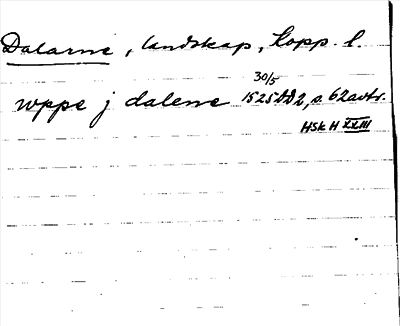 Dalarne, landskap, Kopp. l.
30/5
wppe j dalene 1525 DD2, s. 62 avtr.
HSH XXIII